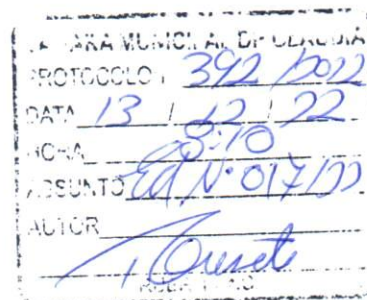 CÂMARA MUNICIPAL DE CLÁUDIA
PROTOCOLO: 392/2022
DATA 13 / 12 / 22
HORA 8:10
ASSUNTO Ed Nº 017/22
AUTOR